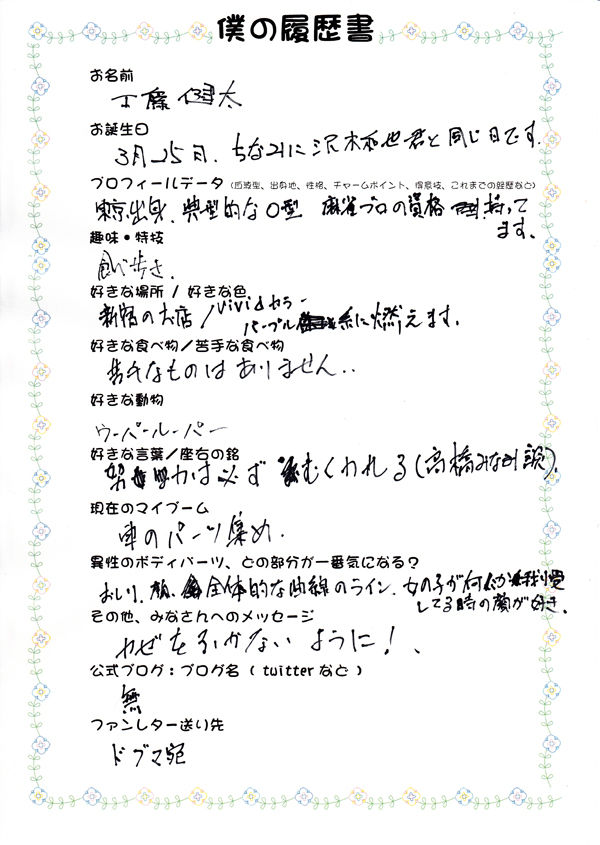 僕の履歴書
お名前
丁 健太
お誕生日
3月25日、ちなみに沢木和也君と同じ日です。
プロフィールデータ（血液型、出身地、性格、チャームポイント、得意技、これまでの経歴など）
東京出身、典型的なO型 麻雀プロの資格 持って
ます、
趣味・特技
食べ歩き、
好きな場所 / 好きな色
新宿の大店 / vividカラー
パープル 系に燃えます。
好きな食べ物/苦手な食べ物
苦手なものはありません、、
好きな動物
ウーパールーパー
好きな言葉/座右の銘
努力は必ずむくわれる(高橋みなみ談)、
現在のマイブーム
車のパーツ集め、
異性のボディパーツ、どの部分が一番気になる？
おしり、顔、全体的な曲線のライン、女の子が何か
してる時の顔が好き、
その他、みなさんへのメッセージ
かぜをひかないように！、
公式ブログ：ブログ名 ( twitterなど )
無
ファンレター送り先
ドグマ宛